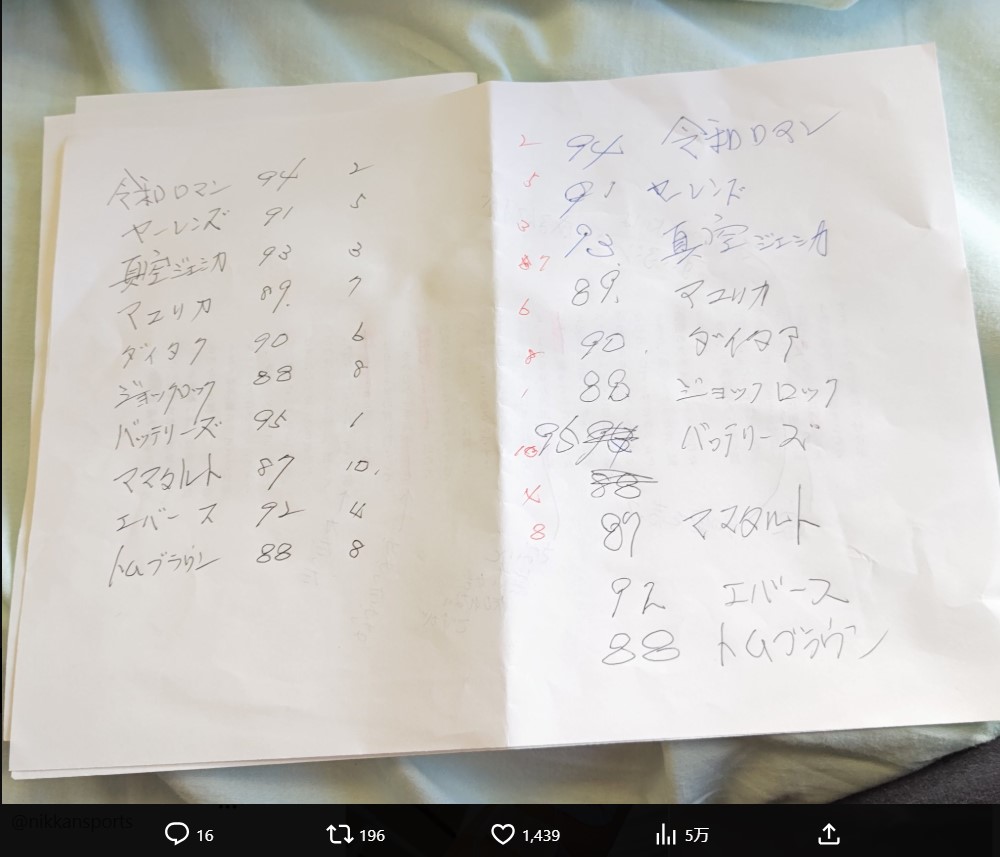 令和ロマン 94 2
ヤーレンズ 91 5
真空ジェシカ 93 3
マユリカ 89. 7
ダイタク 90 6
ジョックロック 88 8
バッテリーズ 95 1
ママタルト 87 10.
エバース 92 4
トムブラウン 88 8
2 94 令和ロマン
5 91 ヤーレンズ
3 93 真空ジェシカ
7 89. マユリカ
6 90. ダイタク
8 88 ジョックロック
1 96 バッテリーズ
10 88
4 87 ママタルト
8
92 エバース
88 トムブラウン
@nikkansports
16 196 1,439 5万